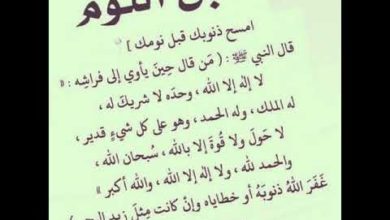 النوم
امسح ذنوبك قبل نومك ]
قال النبي ﷺ : ( مَن قال حِينَ يأوي إلى فراشِه : «
لا إله إلا الله ، وحدَه لا شريكَ له ،
له الملك ، وله الحمد ، وهو على كل شيءٍ قدير ،
لا حَولَ ولا قُوةَ إلا بالله ، سُبحان الله ،
والحمد لله ، ولا إله إلا الله ، والله أكبر »
غَفَرَ اللهُ ذنوبَهُ أو خطاياه وإنْ كانت مِثلَ زبد البحر